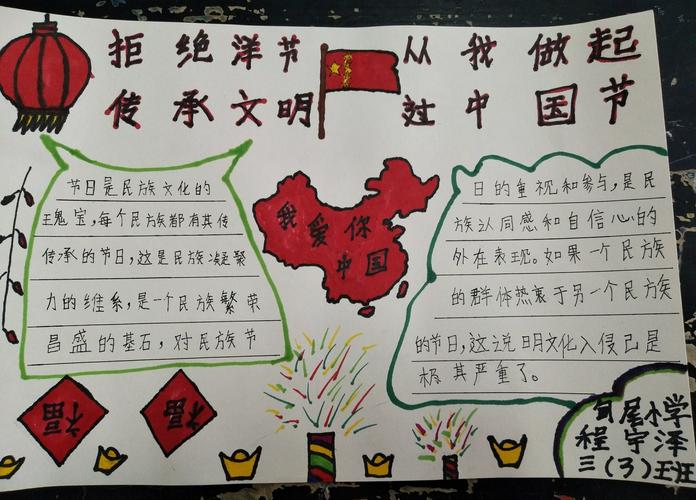 拒绝洋节 从我做起
传承文明 过中国节
节日是民族文化的
瑰宝,每个民族都有其传
传承的节日,这是民族凝聚
力的维系,是一个民族繁荣
昌盛的基石,对民族节
我爱你
中国
日的重视和参与,是民
族认同感和自信心的
外在表现。如果一个民族
的群体热衷于另一个民族
的节日,这说明文化入侵已是
极其严重了。
福
福
尾小学
程宇泽
三(3)王汪